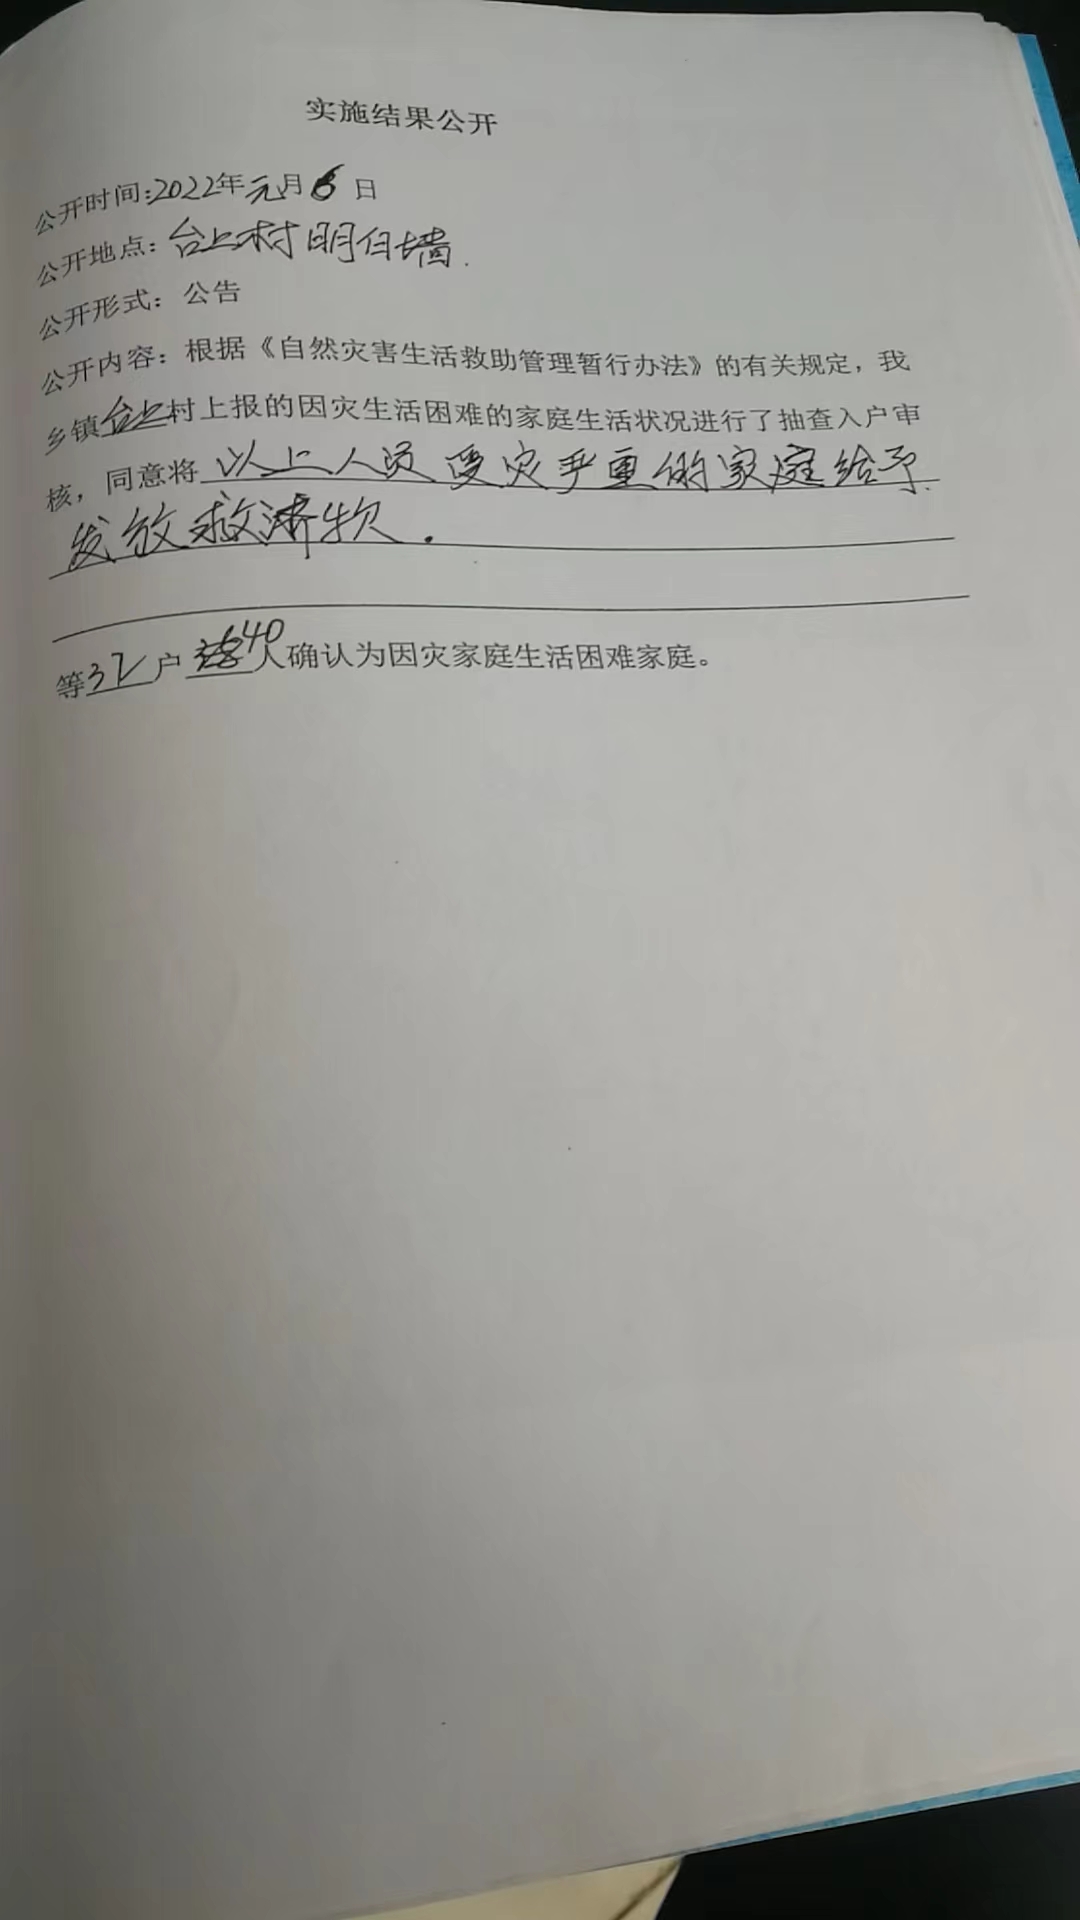 实施结果公开
公开时间：2022年元月6日
公开地点：台上村明白墙.
公开形式：公告
公开内容：根据《自然灾害生活救助管理暂行办法》的有关规定，我
乡镇台上村上报的因灾生活困难的家庭生活状况进行了抽查入户审
核，同意将以上人员受灾严重的家庭给予.
发放救济物.
等32户40人确认为因灾家庭生活困难家庭。